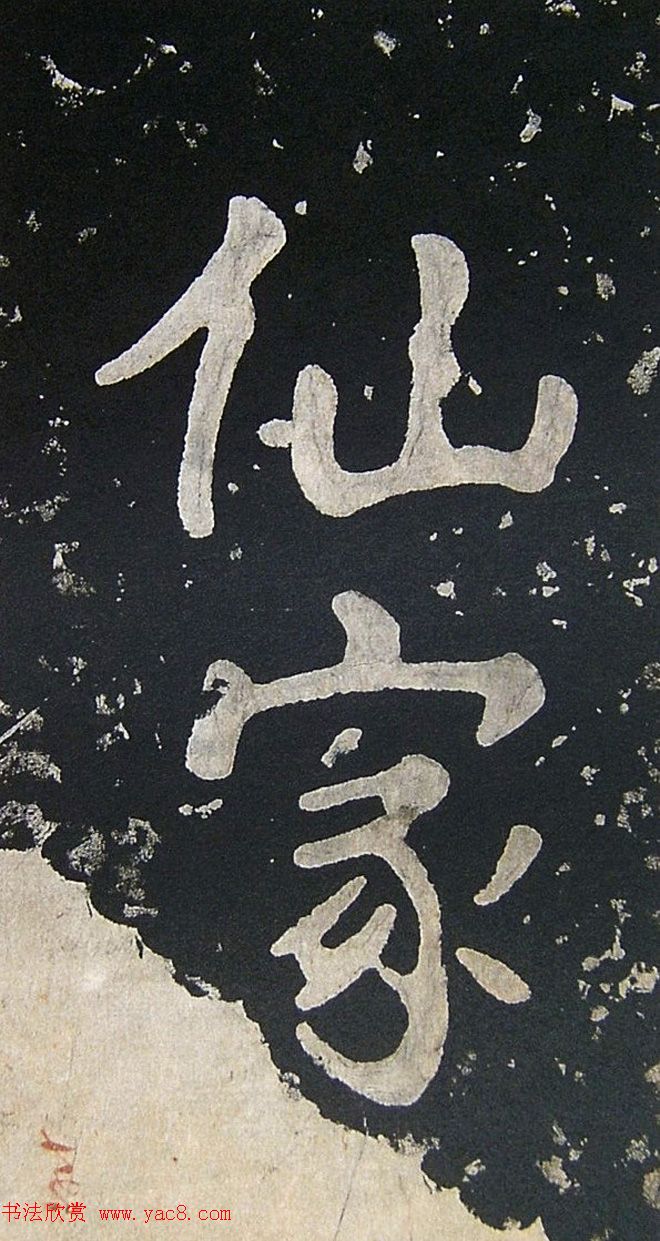 仙家
书法欣赏 www.yac8.com